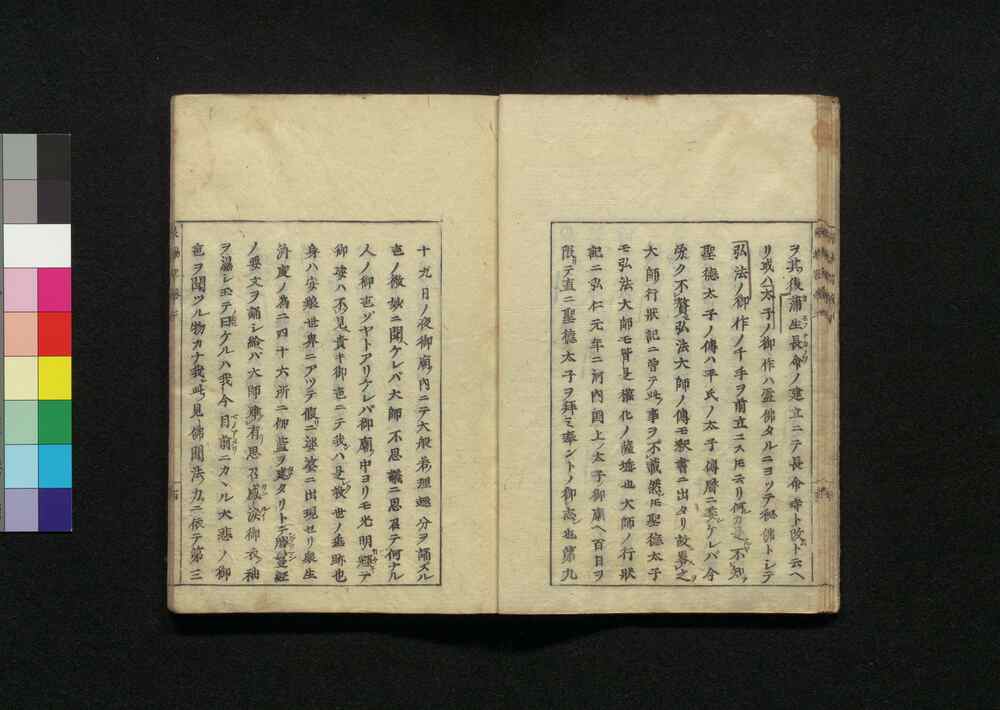 ヲ其後蒲生長命ノ建立ニテ長命寺ト改ト云ヘ
リ或ハ太子ノ御作ハ霊佛タルニヨツテ秘佛トシテ
弘法ノ御作ノ千手ヲ前立ニス𪜈云リ何カ是不知
聖德太子ノ傳ハ平氏ノ太子傳暦ニ委ケレバ今
弘法大師ノ傳モ釈書ニ出タリ故畧之
大師行狀記ニ曽テ此事ヲ不載然𪜈聖德太子
モ弘法大師モ皆是權化ノ薩埵也大師ノ行狀
記ニ弘仁元年ニ河内國上ノ太子御廟ヘ百日ヲ
限テ直ニ聖德太子ヲ拜ミ奉ントノ御志也第九
十九日ノ夜御廟内ニテ大般若理趣分ヲ誦スル
ノ微妙ニ聞ケレバ大師不思議ニ思召テ何ナル
人ノ御ゾヤトアリケレバ御廟中ヨリモ光明輝テ
御姿ハ不見貴キ御ニテ我ハ是救世ノ垂跡也
身ハ安娘世界ニアツテ假ニ娑婆ニ出現セリ衆生
濟度ノ為ニ四十六所ニ伽藍ヲ建タリトテ勝鬘經
ノ要文ヲ誦シ給バ大師難有思召感涙御衣ノ袖
ヲ濕シ玉テ曰ケルハ我今目前ニカヽル大悲ノ御
ヲ聞ツル物カナ我此見佛聞法ノ力ニ依テ第三